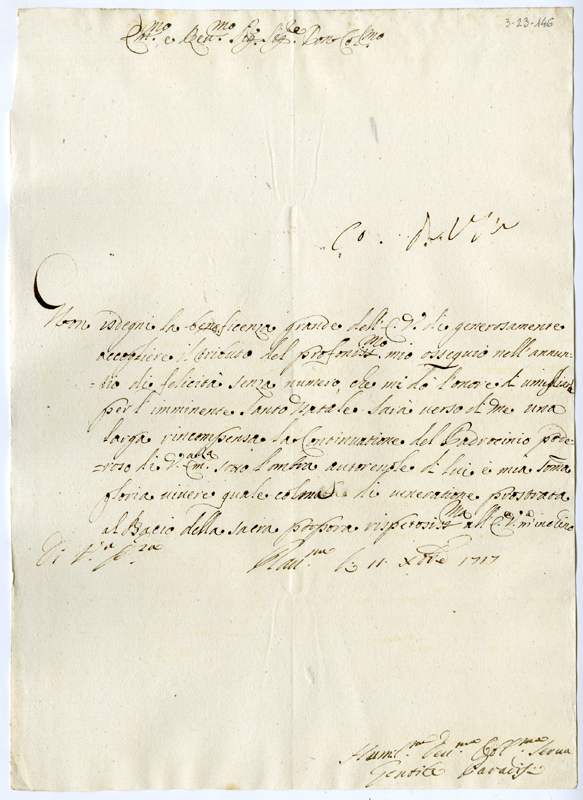 3-23-146
Em.mo e Rev.mo Sig. Sig.re Pron Col.mo
Non isdegni la beneficenza grande dell' E. V. di generosamente
accogliere il tributo del profondis.mo mio ossequio nell'annun-
=tio di felicità senza numero, che mi dò l'onore d'
per l'imminente Santo Natale. Sarà verso di me una
larga rincompensa la Continuatione del Padrocinio pode-
=roso di V. Em. sotto l'ombra autoreuole di cui è mia somma
gloria viuere quale colma di veneratione prostrata
al Bacio della Sacra Porpora rispettosis.ma all' E. V. m'inchino
Di V.ra Em.za Rau.na li 11 Xbre 1717
Humil.ma Deu.ma Obl.ma Serua
Gentile Paradisi